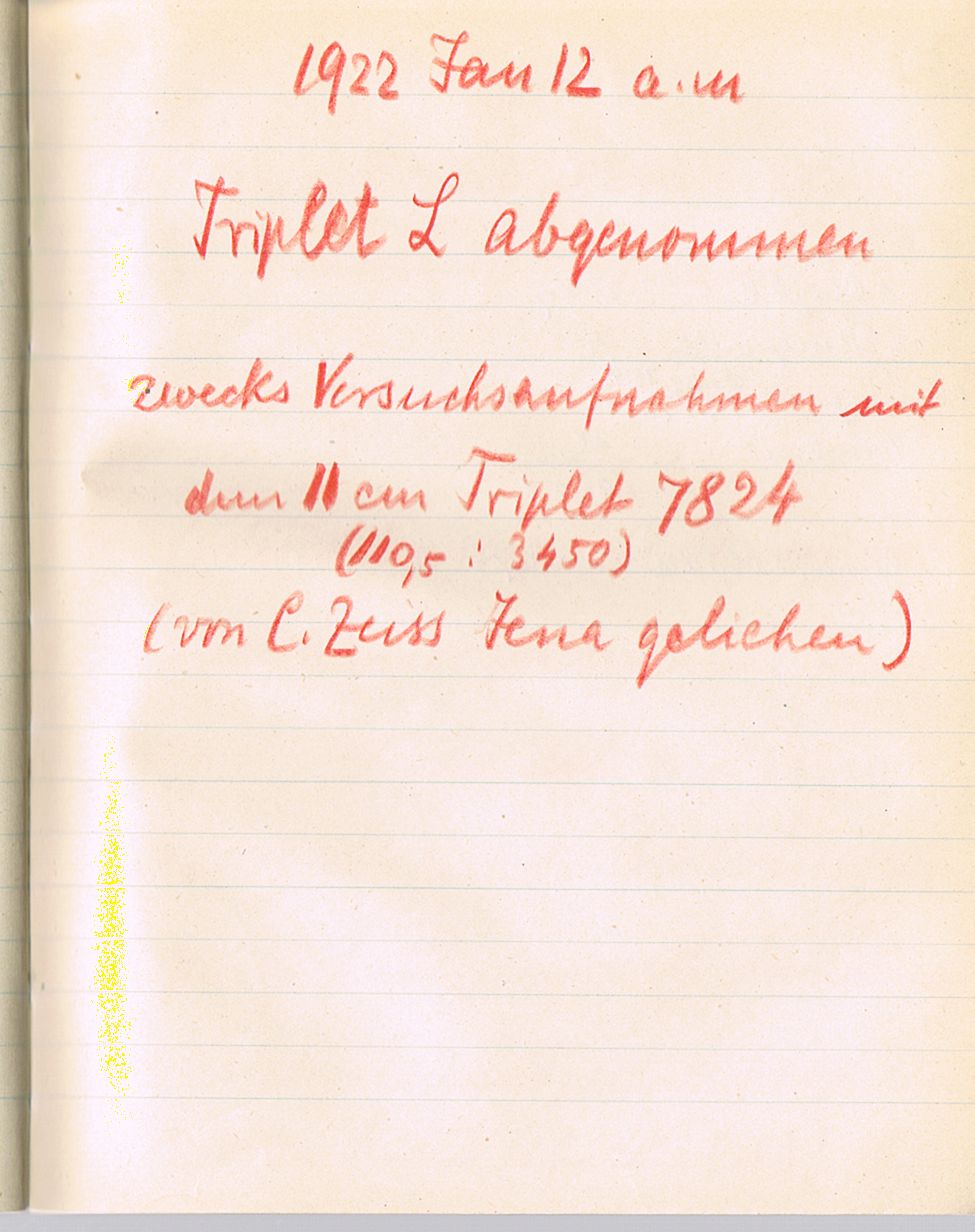 1922 Jan 12 a.m
Triplet L abgenommen
zwecks Versuchsaufnahmen mit
dem 11 cm Triplet 7824
(110,5 : 3450)
(von C. Zeiss Jena geliehen)